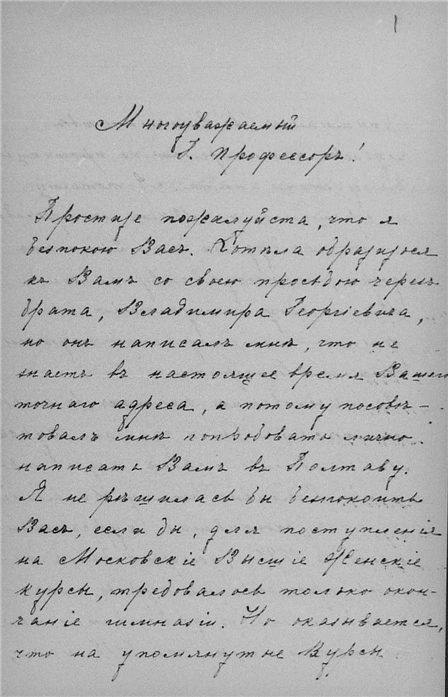 1
Многоуважаемый
Г. Профессоръ!
Простите пожалуйста, что я
безпокою Васъ. Хотѣла обратиться
къ Вамъ со своею просьбою черезъ
брата, Владимира Георгіевича,
но онъ написалъ мнѣ, что не
знаетъ въ настоящее время Вашего
точнаго адреса, а потому посовѣ-
товалъ мнѣ попробовать лично
написать Вамъ въ Полтаву.
Я не рѣшилась бы безпокоить
Васъ, если бы, для поступленія
на Московскіе Высшіе Женскіе
курсы, требовалось только окон-
чаніе гимназіи. Но оказывается,
что на упомянутые Курсы